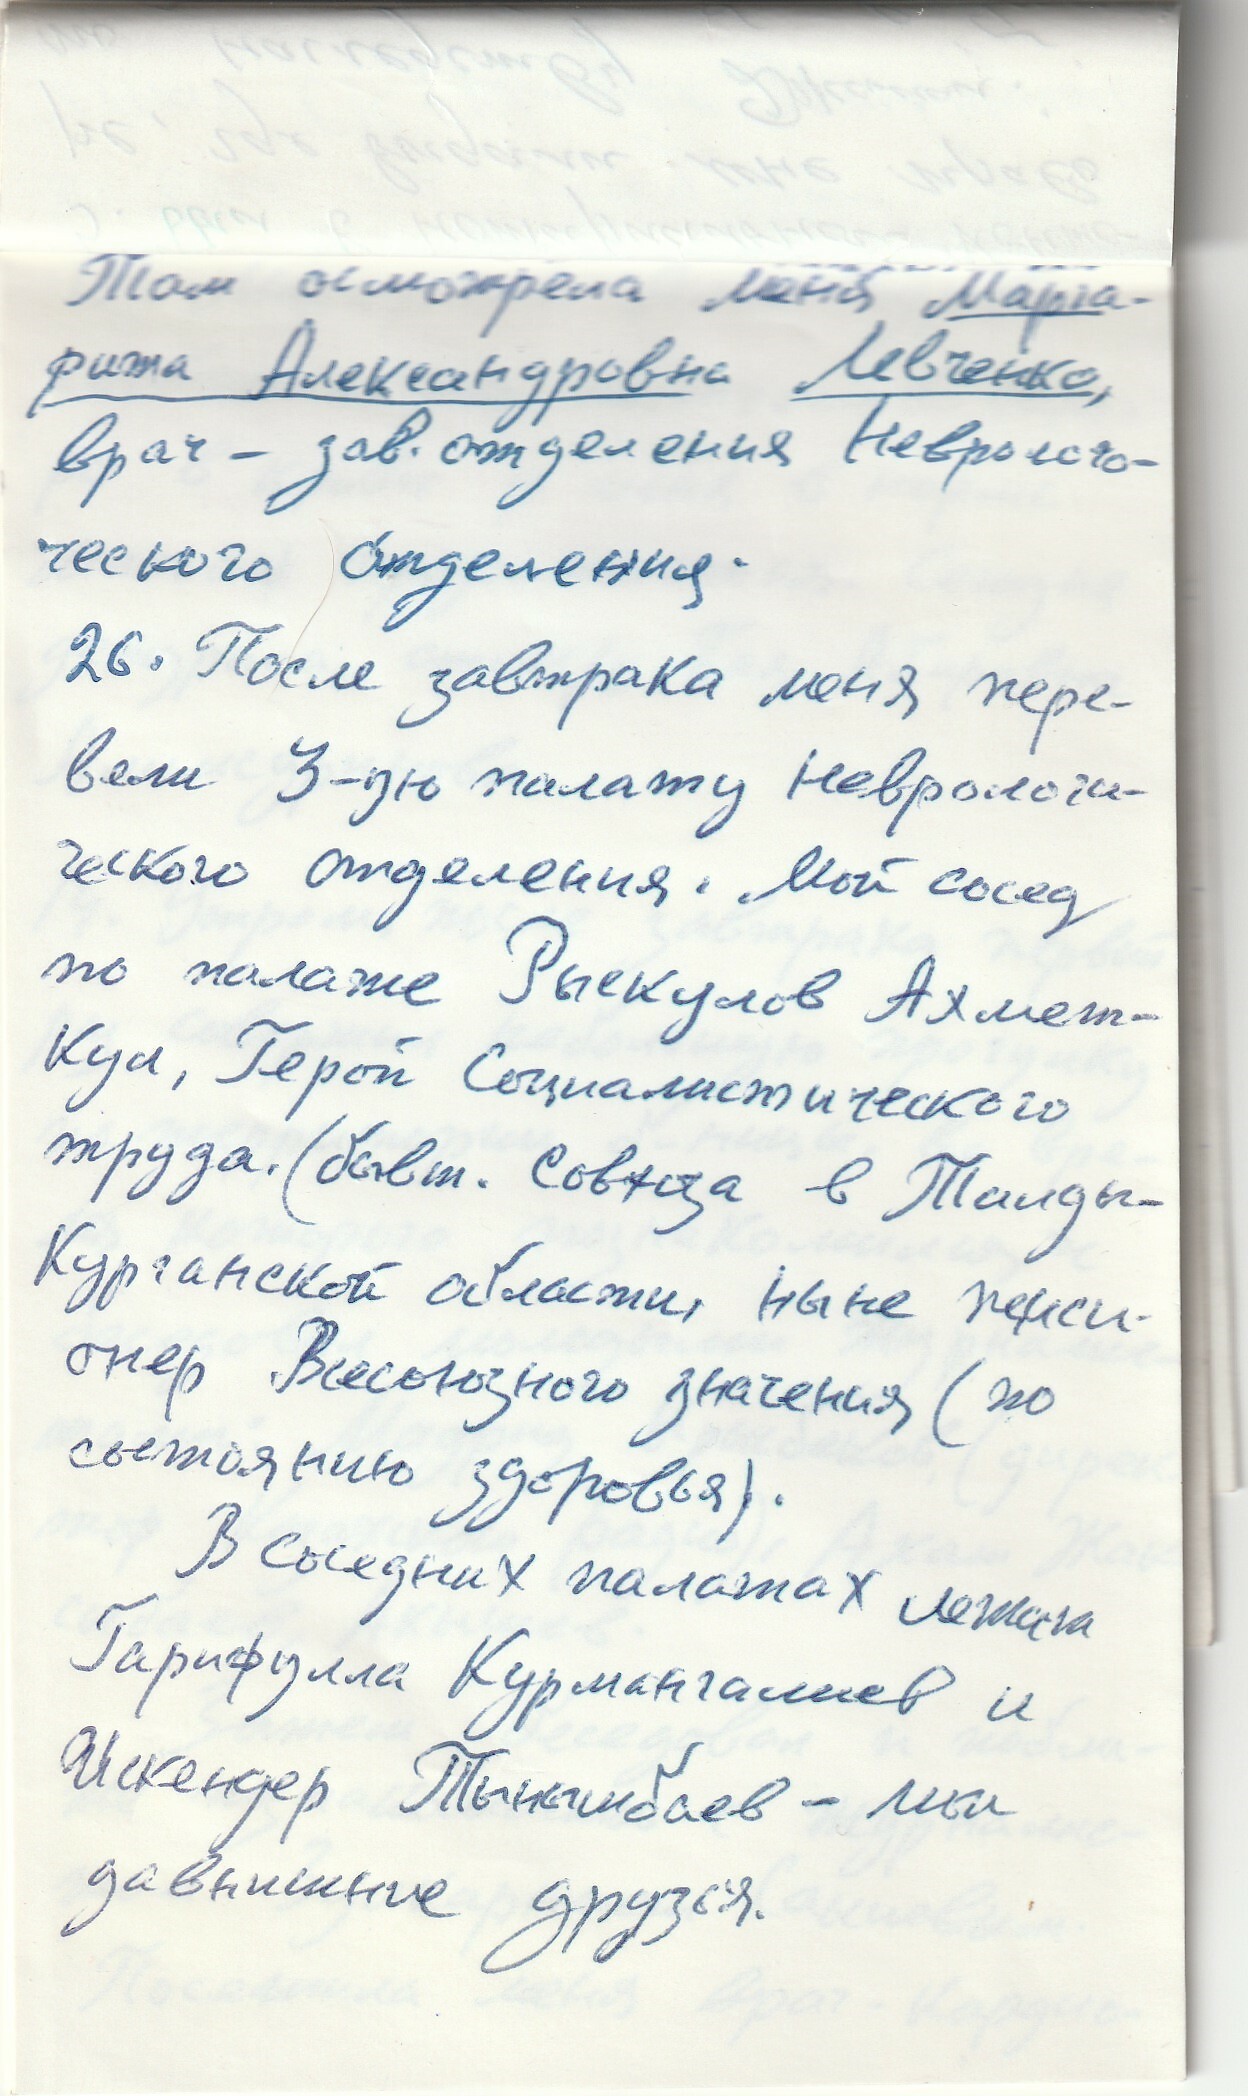 Там осмотрела меня Марга-
рита Александровна Левченко,
врач – зав. отделения Невролого-
ческого отделения.
26. После завтрака меня пере-
вели 3-ую палату неврологи-
ческого отделения. Мой сосед
по палате Рыскулов Ахмет-
кул, Герой Социалистического
труда. (бывш. Совхоза в Талды-
Курганской области, ныне пенси-
онер Всесоюзного значения (по
состоянию здоровья).
В соседних палатах лежат
Гарифулла Курмангалиев и
Искендер Тынышбаев – мои
давнишние друзья.